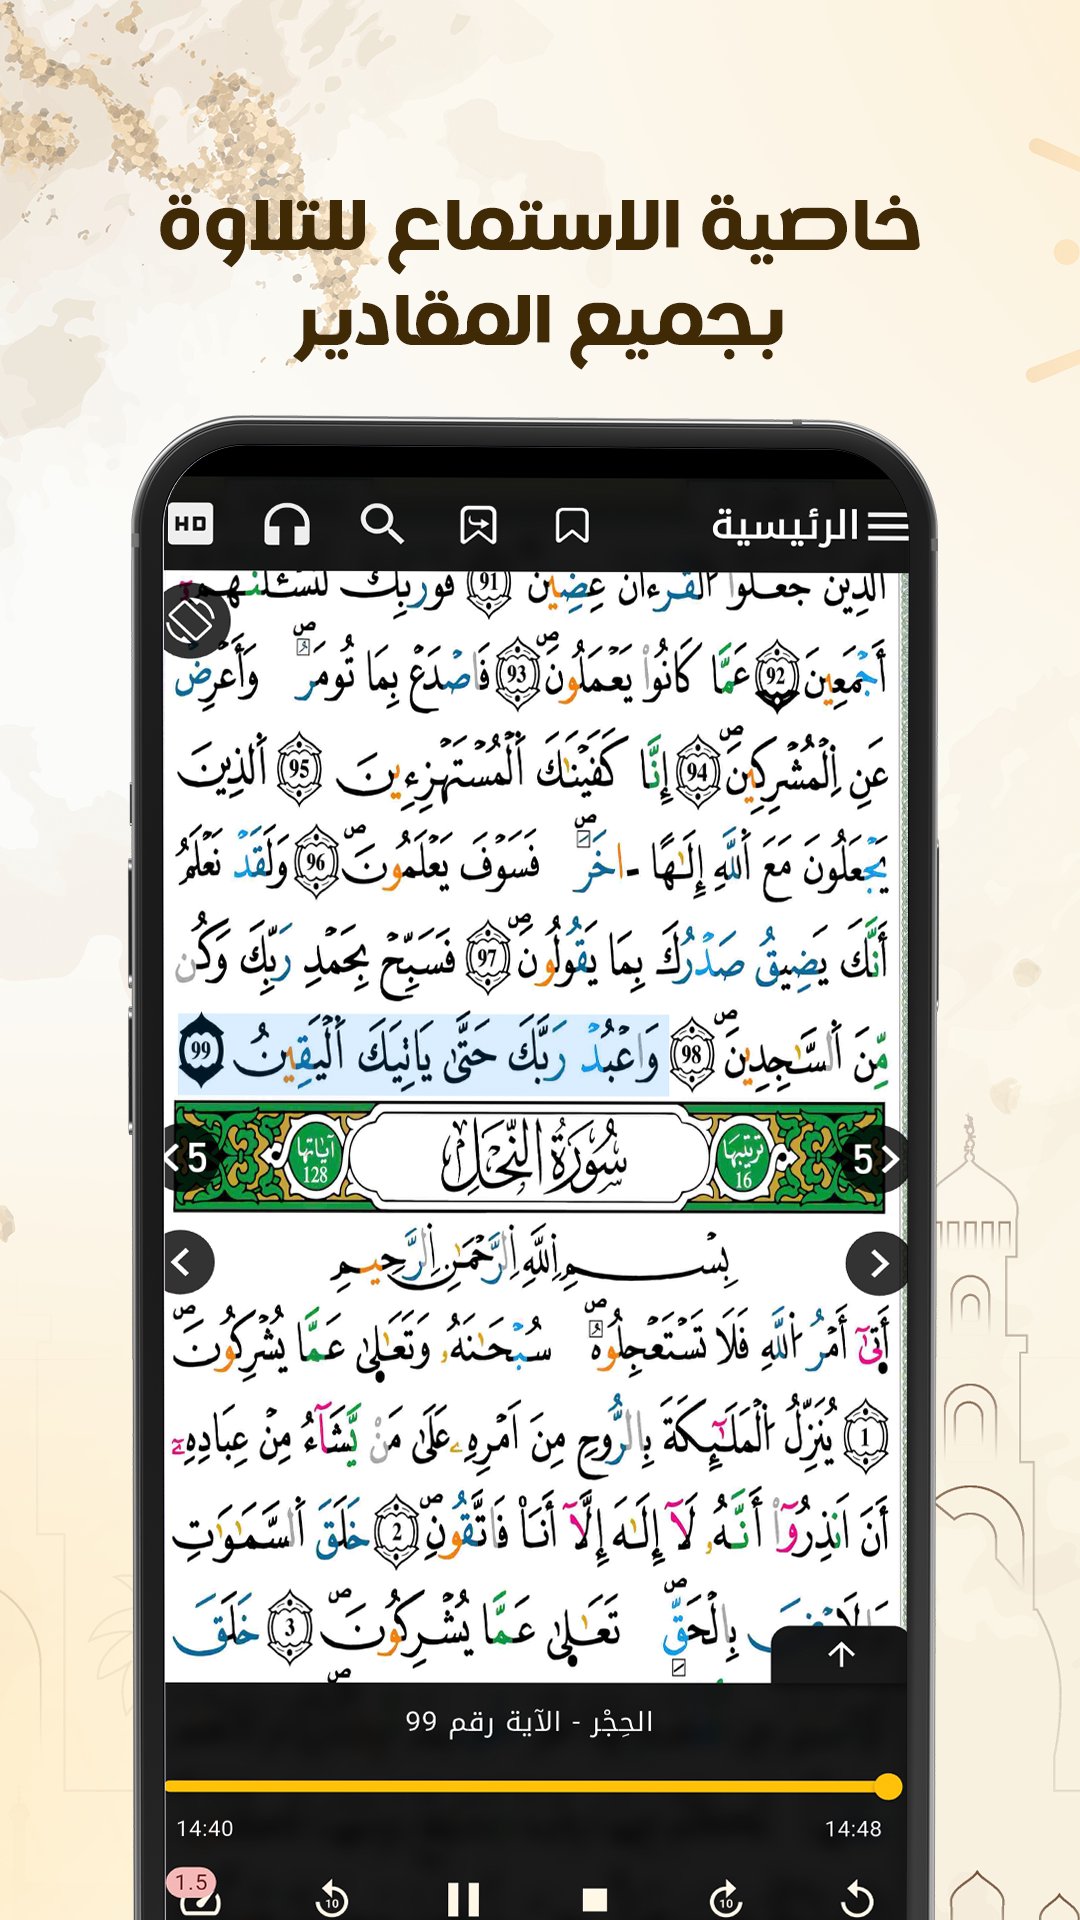 خاصية الاستماع للتلاوة
بجميع المقادير
HD
الرئيسية
الذِينَ جَعَلُوا اُلْقُرْءَانَ عِضِينَ 91 فَوَرَبِّكَ لَنَسْـَٔلَنَّهُمُۥٓ
أَجْمَعِينَ 92 عَمَّا كَانُوا يَعْمَلُونَ 93 فَاصْدَعْ بِمَا تُومَرُ وَأَعْرِضْ
عَنِ اِلْمُشْرِكِينَ 94 إِنَّا كَفَيْنَٰكَ اَلْمُسْتَهْزِءِينَ 95 اَلذِينَ
يَجْعَلُونَ مَعَ اَللَّهِ إِلَٰهًا ـاخَرَ فَسَوْفَ يَعْلَمُونَ 96 وَلَقَدْ نَعْلَمُ
أَنَّكَ يَضِيقُ صَدْرُكَ بِمَا يَقُولُونَ 97 فَسَبِّحْ بِحَمْدِ رَبِّكَ وَكُن
مِّنَ اَلسَّٰجِدِينَ 98 وَاعْبُدْ رَبَّكَ حَتَّىٰ يَاتِيَكَ اَلْيَقِينُ 99
5
ترتيبها 16
سُورَةُ النَّحْلِ
آياتها 128
5
بِسْمِ اِللَّهِ اِلرَّحْمَٰنِ اِلرَّحِيمِ
أَتَىٰٓ أَمْرُ اُللَّهِ فَلَا تَسْتَعْجِلُوهُ سُبْحَٰنَهُۥ وَتَعَٰلَىٰ عَمَّا يُشْرِكُونَ
1 يُنَزِّلُ اُلْمَلَٰٓئِكَةَ بِالرُّوحِ مِنَ اَمْرِهِۦ عَلَىٰ مَنْ يَّشَآءُ مِنْ عِبَادِهِۦٓ
أَنَ اَنذِرُوٓا أَنَّهُۥ لَآ إِلَٰهَ إِلَّآ أَنَا فَاتَّقُونِ 2 خَلَقَ اَلسَّمَٰوَٰتِ
بِالْحَقِّ تَعَٰلَىٰ عَمَّا يُشْرِكُونَ 3 خَلَقَ
الحِجْر - الآية رقم 99
14:40
14:48
1.5
10
10